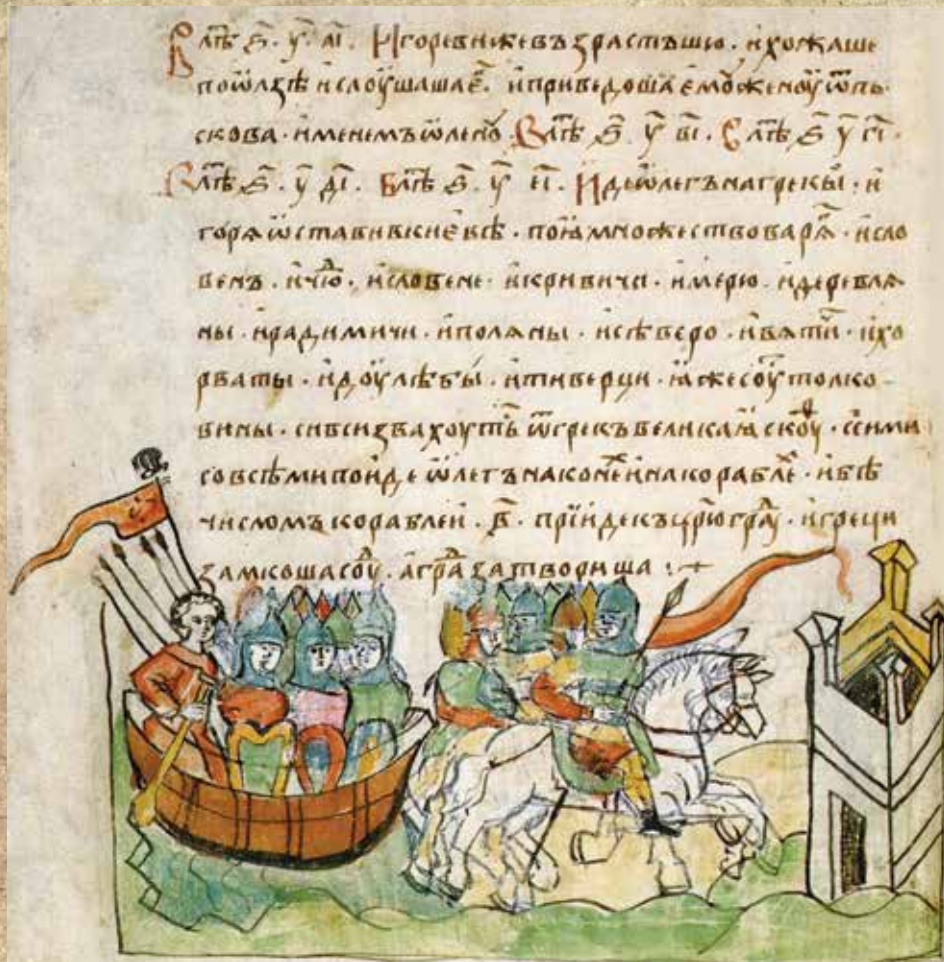 В лⷮѣ ҂ѕ҃. у҃. а҃ı. И҆горевиже възрастъшю. и҆хожаше
поѡ҆лзѣ и҆слоушаше е҆г. и҆приведоша е҆моу женоу ѿпь
скова. и҆менемъ ѡ҆леноу В лⷮѣ ҂ѕ҃ у҃ в҃ı. В лⷮѣ ҂ѕ҃ у҃ г҃ı.
В лⷮѣ ҂ѕ҃. у҃ д҃ı. В лⷮѣ ҂ѕ҃. у҃ е҃ı. И҆де ѡ҆легъ нагрекы. и҆
горѧ ѡ҆ставивкиевѣ. поıа множествоварѧг. и҆сло
венъ. и҆чюд. и҆словене. и҆кривичи. и҆мерю. и҆деревлѧ
ны. и҆радимичи. и҆полѧны. и҆сѣверо. и҆вѧтичи. и҆хо
рваты. и҆доулѣбы. и҆тиверци. ıаже соуⷮ толко
вины. сивси звахоутьⷭ ѿгрекъ великаıа скоуⷴ. ссими
совсѣмипоиде ѡ҆легъ наконех и҆накораблех. и҆бѣ
числомъ кораблеи. в҃. прїиде къцрюградоу. и҆греци
замкоша соуд. а҆град затвориша